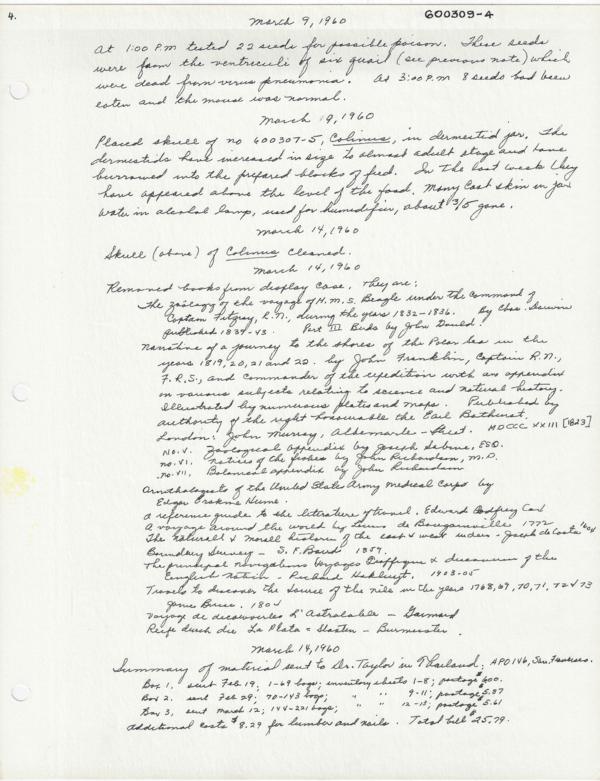 4.
March 9, 1960
600309-A
At 1:00 P.M tested 22 seeds for possible poison. These seeds
were from the ventriculi of six quail (see previous note) which
were dead from virus pneumonia. At 3:00 P.M 8 seeds had been
eaten and the mouse was normal.
March 9, 1960
Placed skull of no 600307-5, Colinus, in dermestid jar. The
dermestids have increased in size to almost adult stage and have
burrowed into the prepared blocks of feed. In the last week they
have appeared above the level of the food. Many cast skin in jar
Water in alcohol lamp, used for humidifier, about 3/5 gone.
March 14, 1960
Skull (above) of Colinus cleaned.
March 14, 1960
Removed books from display case. They are:
The zoology of the voyage of H.M.S. Beagle under the command of
Captain Fitzroy, R.N., during the years 1832-1836. By Chas. Darwin
published 1839-43. Part III Birds by John Gould.
Narrative of a journey to the shores of the Polar Sea in the
years 1819, 20, 21 and 22. by John Franklin, Captain R.N.,
F.R.S., and commander of the expedition with an appendix
on various subjects relating to science and natural history.
Illustrated by numerous plates and maps. Published by
authority of the right honourable the Earl Bathurst.
London: John Murray, Albemarle-Street. MDCCC XXIII [1823]
No. V. Zoological appendix by Joseph Sabine, ESQ.
no. VI. Notices of the fishes by John Richardson, M.D.
no. VII. Botanical appendix by John Richardson
Ornithologists of the United States Army Medical Corps by
Edgar Erskine Hume.
A reference guide to the literature of travel. Edward Godfrey Cox
A voyage around the world by Louis de Bougainville 1772
The natural & morall historie of the east & west indies - Joseph de Costa 1604
Boundary Survey - S. F. Baird 1859.
The principal navigations Voyages Traffiques & discoveries of the
English Nation - Richard Hakluyt. 1903-05
Travels to discover the source of the nile in the years 1768, 69, 70, 71, 72 & 73
James Bruce. 1804
Voyage de decouvertes L'Astrolabe - Gaimard
Reise durch die La Plata = Staaten - Burmeister.
March 14, 1960
Summary of material sent to Dr. Taylor in Thailand; APO 146, San Francisco.
Box 1, sent Feb 19; 1-69 bags; inventory sheets 1-8; postage $6.00.
Box 2. sent Feb 29; 70-143 bags; " " 9-11; postage 5.87
Box 3, sent March 12; 144-221 bags; " " 12-13; postage 5.61
additional costs $8.29 for lumber and nails. Total bill $25.79.